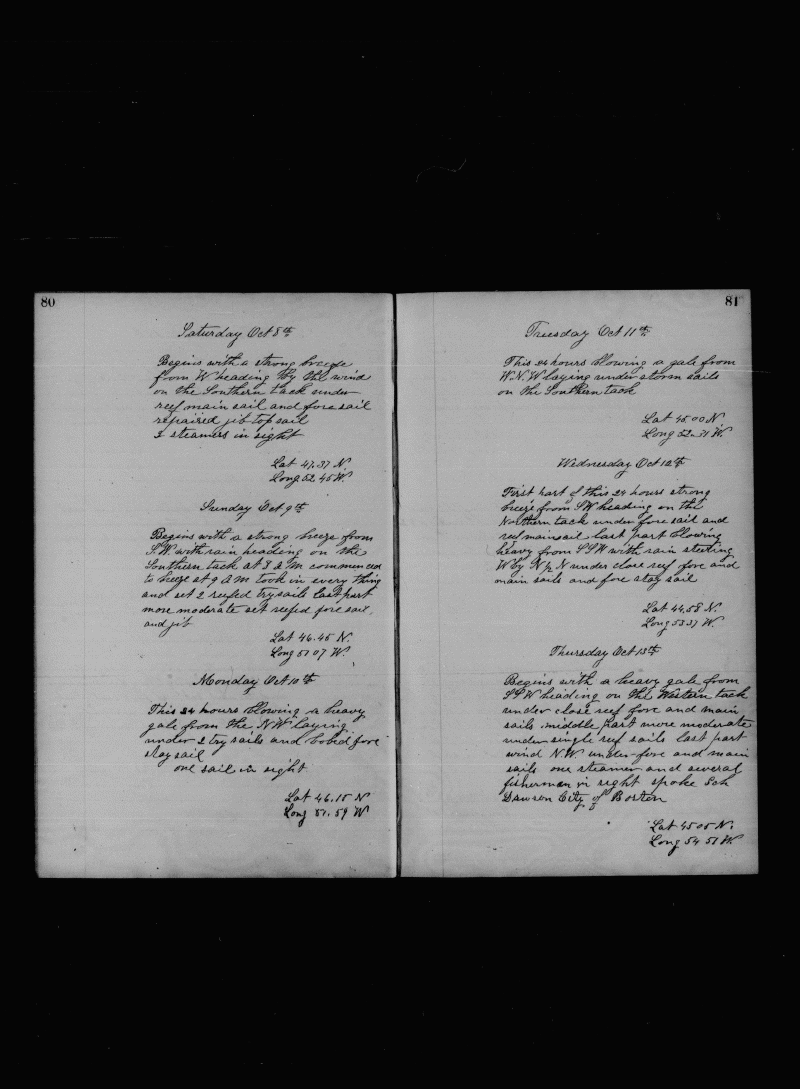 80
Saturday Oct 8th
Begins with a strong breeze
from W heading by the wind
on the Southern tack under
reef main sail and fore sail
repaired jib top sail
2 steamers in sight
Lat 47.37 N.
Long 52.45 W.
Sunday Oct 9th
Begins with a strong breeze from
S.W. with rain heading on the
Southern tack at 3 a m commenced
to breeze at 9 A M took in every thing
and set 2 reefed trysails last part
more moderate set reefed fore sail,
and jib
Lat 46.45 N.
Long 51 07 W.
Monday Oct 10th
This 24 hours blowing a heavy
gale from the N.W. laying
under 2 try sails and fore
stay sail
one sail in sight
Lat 46.15 N
Long 51.59 W
81
Tuesday Oct 11th
This 24 hours blowing a gale from
W.N.W laying under storm sails
on the Southern tack
Lat 45 00 N
Long 52.31 W.
Wednesday Oct 12th
First part of this 24 hours strong
breeze from SW heading on the
Northern tack under fore sail and
reef mainsail last part blowing
heavy from SSW with rain steering
W by N ½ N under close reef fore and
main sails and fore stay sail
Lat 44.58 N.
Long 53 37 W.
Thursday Oct 13th
Begins with a heavy gale from
SSW heading on the Western tack
under close reef fore and main
sails middle part more moderate
under single reef sails last part
wind N.W. under fore and main
sails one steamer and several
fisherman in sight spoke Sch
Dawson City of Boston
Lat 45 05 N.
Long 54 51 W.